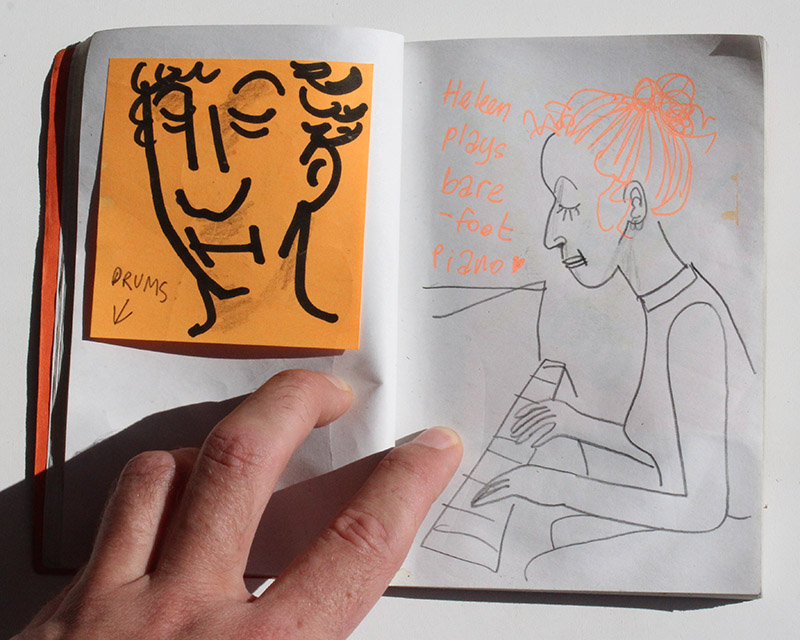 DRUMS
Heleen
plays
bare
-foot
Piano